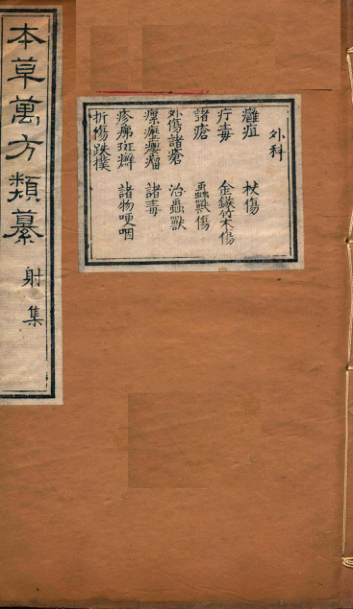 外科
癰疽　杖傷
疔毒　金鏃竹木傷
諸瘡　蟲獸傷
外傷諸瘡　治蟲獸
瘰癧癭瘤　諸毒
疹疿斑癬　諸物哽咽
折傷跌撲
本草萬方類纂　射集